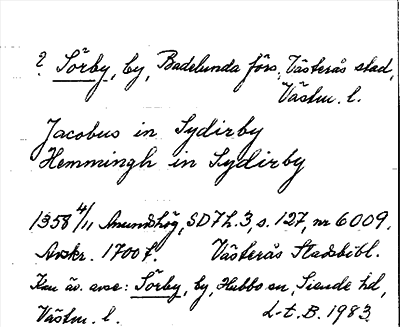 ? Sörby, by, Badelunda förs, Västerås stad,
Västm. l.
Jacobus in Sydirby
Hemmingh in Sydirby
1358 4/11 Anundshög, SD7h.3, s. 127, nr 6009.
Avskr. 1700t. Västerås Stadsbibl.
Kan äv. avse: Sörby, by, Hubbo sn, Siende hd,
Västm. l. L-t. B. 1983